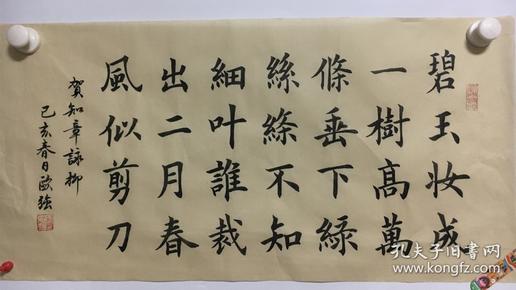 碧玉妆成
一樹高萬
條垂下綠
絲絛不知
細叶誰裁
出二月春
風似剪刀
賀知章詠柳
己亥春日歐強
孔夫子旧書网
www.kongfz.com